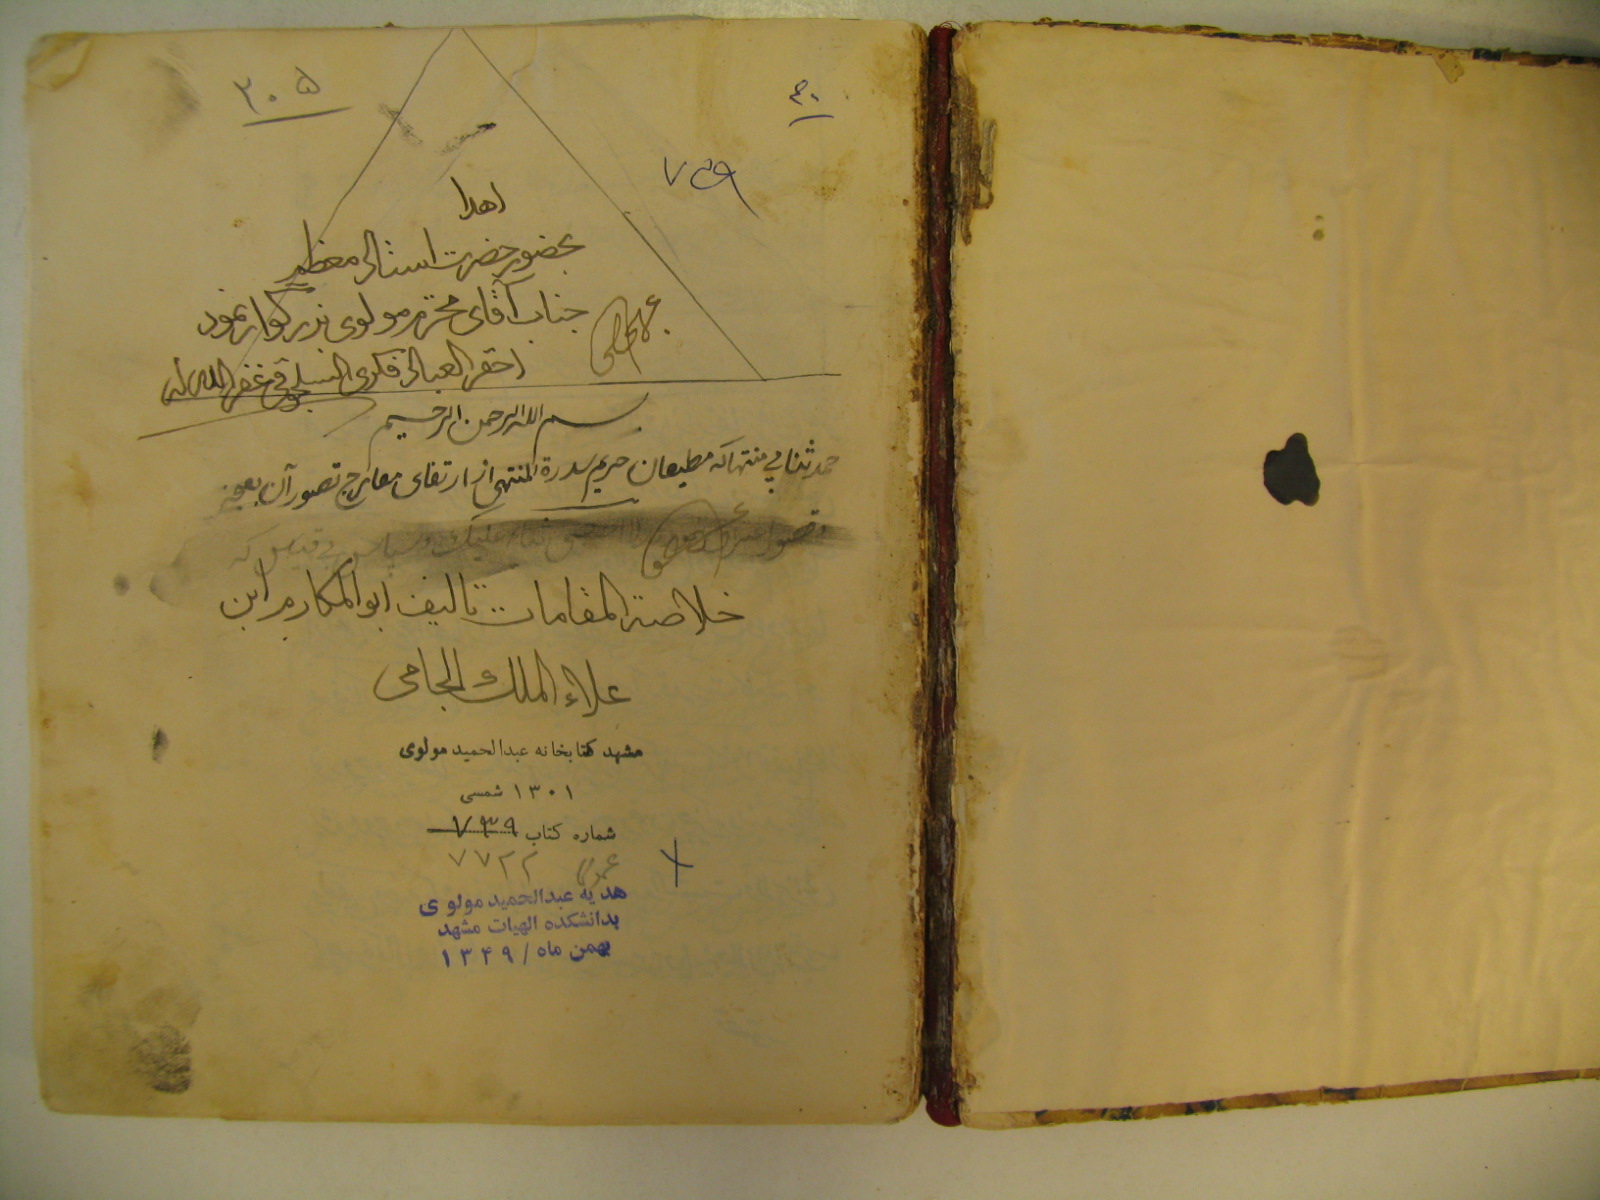 ۳۰۵
۳۰
۷۳۹
اهدا
بحضور حضرت استاد معظم
جناب آقای محترم مولوی بزرگوار نمود
احقر العباد فکری السلجوقی غفر الله له
بسم الله الرحمن الرحیم
حمد و ثنای بی منتها که مطیعان حریم سدرة المنتهی از ارتقای معارج تصور آن بعجز
خلاصة المقامات تالیف ابوالمکارم ابن
علاء الملک الجامی
مشهد کتابخانه عبدالحمید مولوی
۱۳۰۱ شمسی
شماره کتاب ۷۳۹
۷۷۲۲
هدیه عبدالحمید مولوی
بدانشکده الهیات مشهد
بهمن ماه / ۱۳۴۹